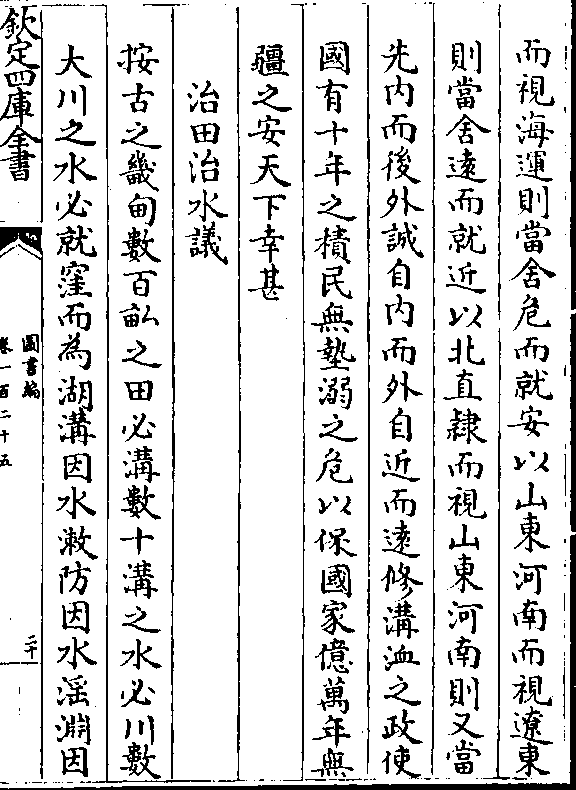 而視海運則當舍危而就安以山東河南而視遼東
則當舍遠而就近以北直隸而視山東河南則又當
先内而後外誠自内而外自近而遠修溝洫之政使
國有十年之積民無墊溺之危以保國家億萬年無
疆之安天下幸甚
治田治水議
按古之畿甸數百畝之田必溝數十溝之水必川數
大川之水必就窪而為湖溝因水漱防因水滛淵因
欽定四庫全書
圖書編
卷一百二十五
二十